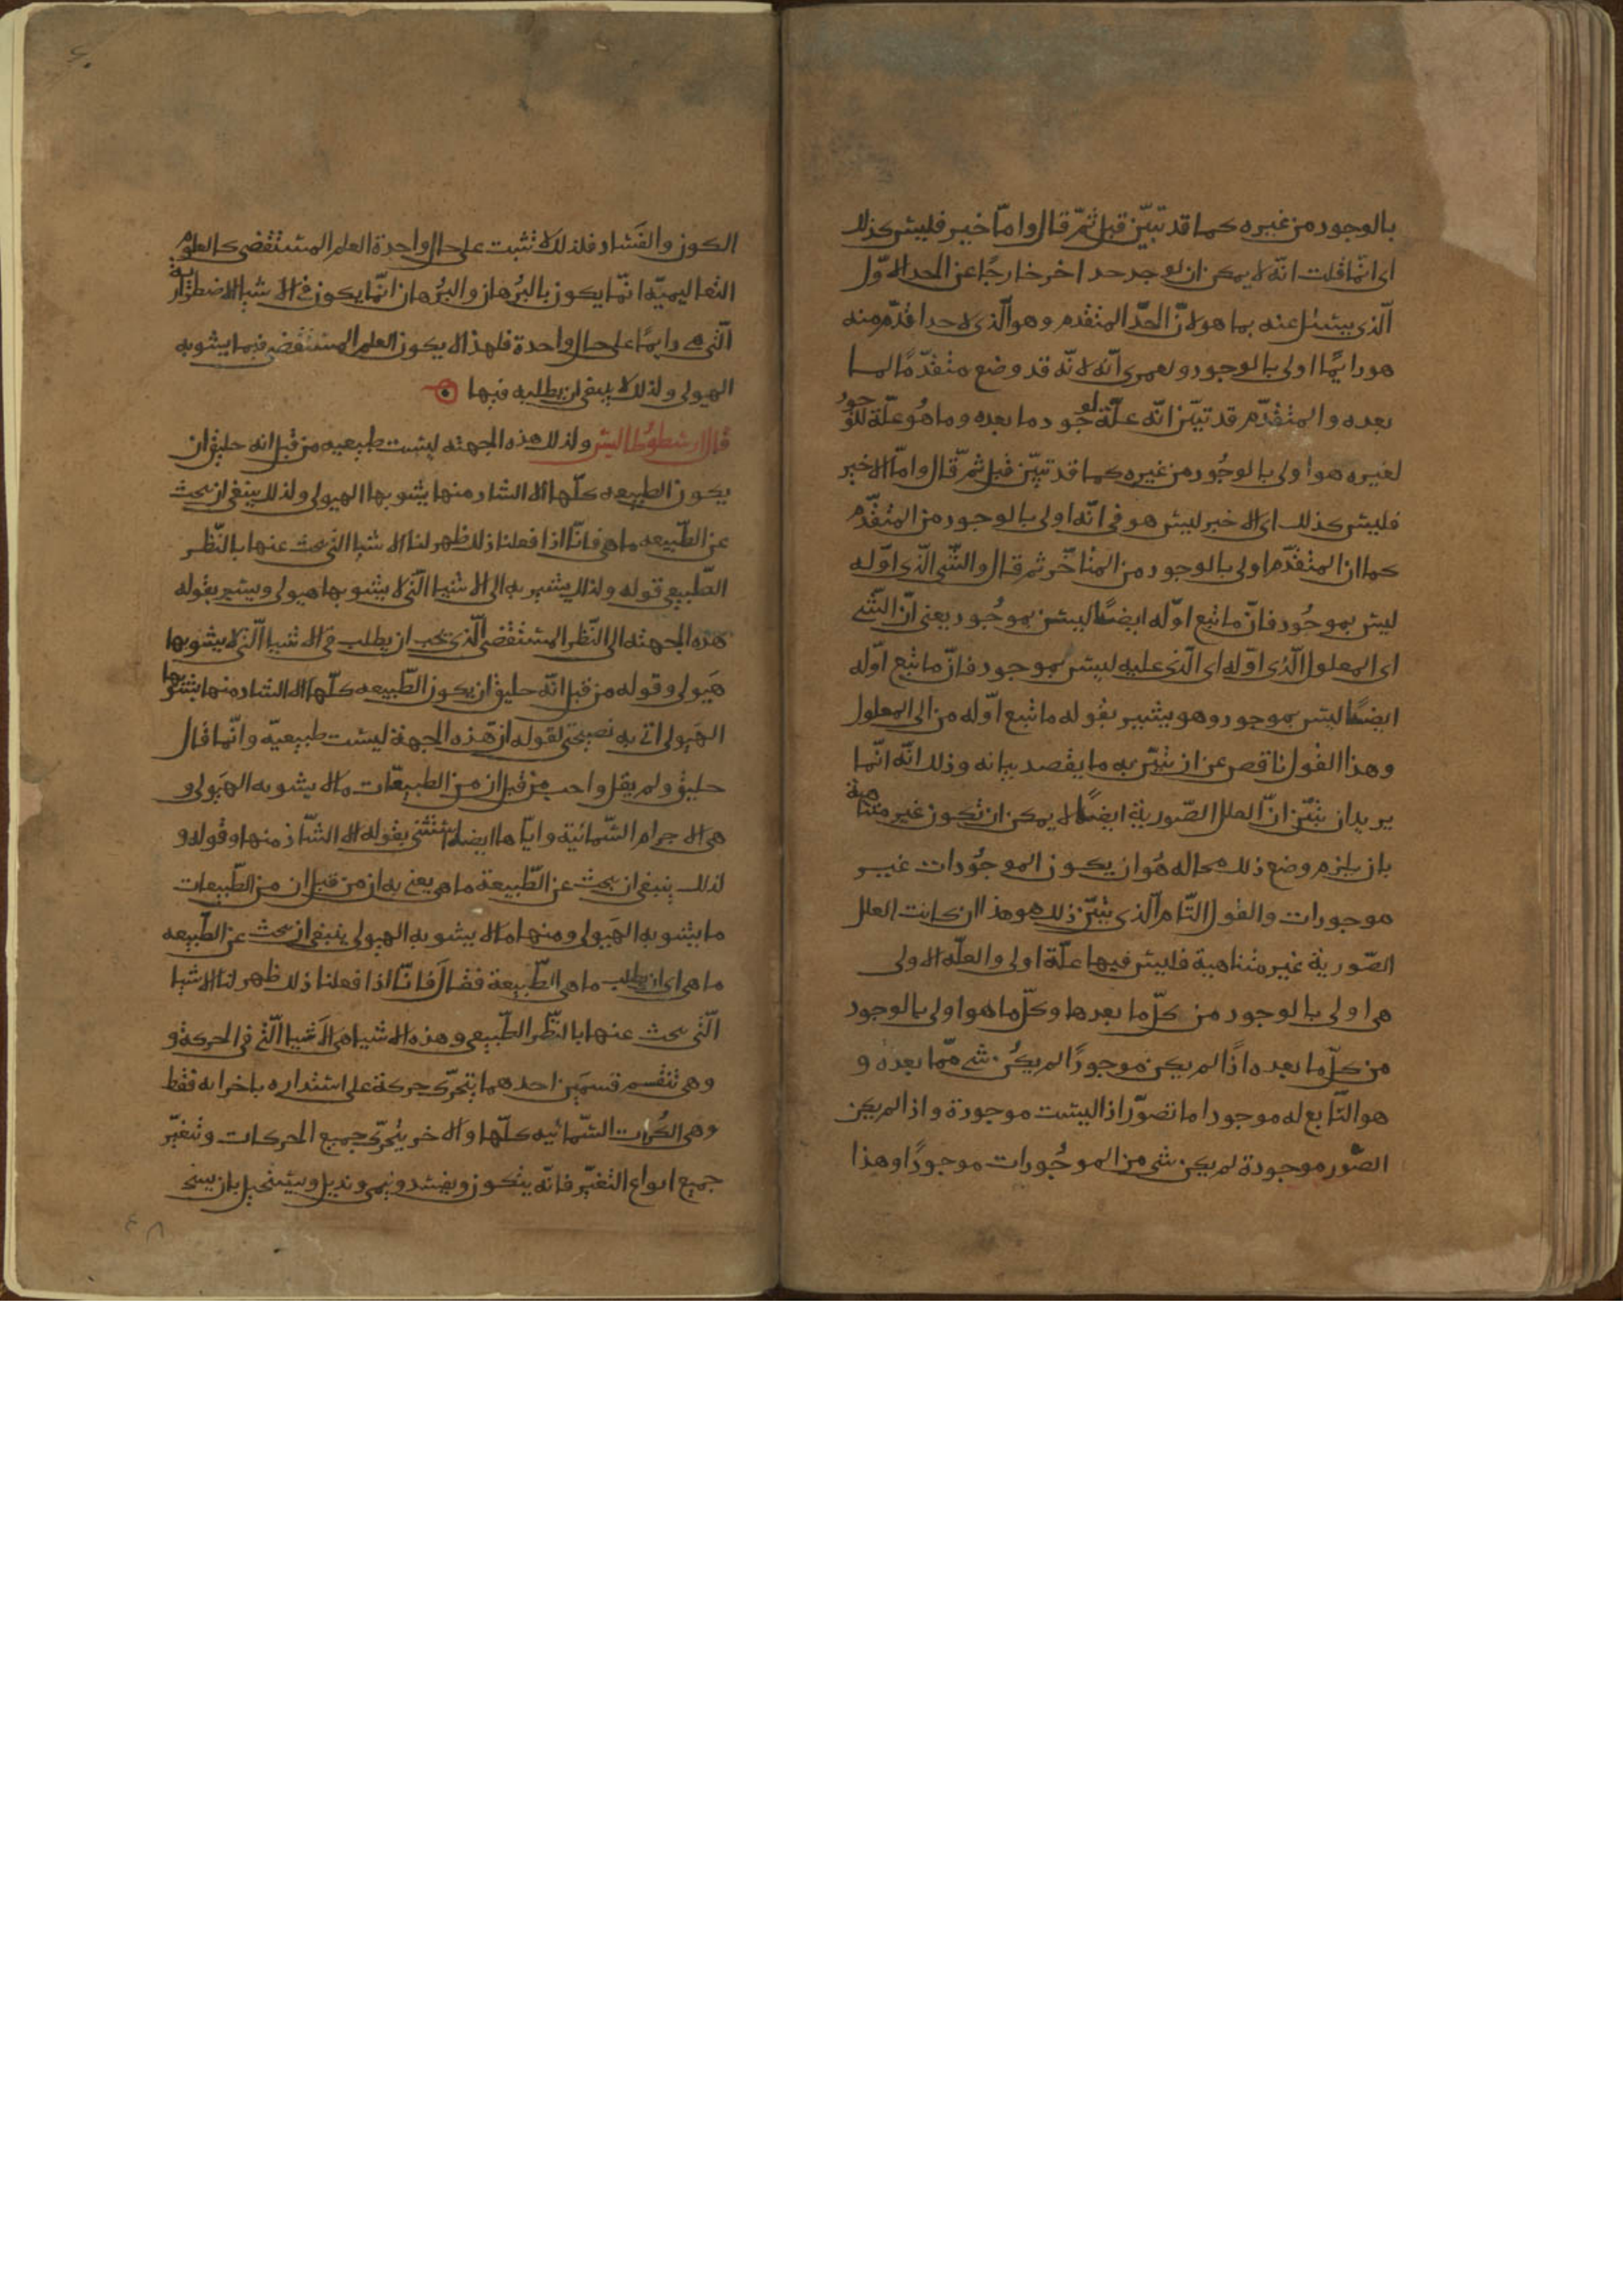 بالوجود من غيره كما قد تبيّن قبل ثمّ قال وامّا خير فليس كذلك
اى انّما قلت انّه لا يمكن ان يوجد حد اخر خارجًا عن الحد الاوّل
الّذى يسئل عنه بما هو لانّ الحدّ المتقدم وهو الّذى لا حد اقدم منه
هو دايمًا اولى بالوجود ولعمرى انّه لانّه قد وضع متقدّمًا لما
بعده والمتقدّم قد تبيّن انّه علّة لوجود ما بعده وما هو علّة لوجود
لغيره هو اولى بالوجود من غيره كما قد تبيّن قبل ثمّ قال وامّا الاخير
فليس كذلك اى الاخير ليس هو فى انّه اولى بالوجود من المتقدّم
كما ان المتقدّم اولى بالوجود من المتاخّر ثم قال والشّى الّذى اوّله
ليس بموجود فانّ ما تبع اوّله ايضًا ليس بموجود يعنى انّ الشّى
اى المعلول الّذى اوّله اى الّذى عليه ليس بموجود فانّ ما تبع اوّله
ايضًا ليس بموجود وهو يشير بقوله ما تبع اوّله من الى المعلول
وهذا القول ناقص عن ان تبيّن به ما يقصد بيانه وذلك انّه انّما
يريد ان يبيّن انّ العلل الصّورية ايضًا لا يمكن ان تكون غير متناهية
بان يلزم وضع ذلك محاله هو ان يكون الموجودات غير
موجودات والقول التّام الّذى يبيّن ذلك هو هذا ان كانت العلل
الصّورية غير متناهية فليس فيها علّة اولى والعلّه الاولى
هى اولى بالوجود من كلّ ما بعدها وكلّ ما هو اولى بالوجود
من كلّ ما بعده اذا لم يكن موجودًا لم يكن شى ممّا بعده و
هو التّابع له موجودا ما تصوّر اذا ليست موجودة واذا لم يكن
الصّور موجودة لم يكن شى من الموجودات موجودًا وهذا
الكون والفساد فلذلك لا تثبت على حال واحدة العلم المستقضى كالعلوم
التعاليميّه انّما يكون بالبرهان والبرهان انّما يكون فى الاشيا الاضطرارية
الّتى هى دايمًا على حال واحدة فلهذا لا يكون العلم المستقضى فيما يشوبه
الهيولى ولذلك لا ينبغى ان يطلبه فيها
قال ارسطوطاليس ولذلك هذه الجهته ليست طبيعيه من قبل انه خليق ان
يكون الطبيعه كلّها الا الشاد منها يشوبها الهيولى ولذلك ينبغى ان يبحث
عن الطّبيعه ما هى فانّا اذا فعلنا ذلك ظهر لنا الاشيا التى يبحث عنها بالنّظر
الطّبيعى قوله ولذلك يشير به الى الاشيا الّتى لا يشوبها هيولى ويشير بقوله
هذه الجهته الى النّظر المستقضى الّذى يجب ان يطلب فى الاشيا الّتى لا يشوبها
هيولى وقوله من قبل انّه خليق ان يكون الطّبيعه كلّها الا الشاد منها يشوبها
الهيولى اتى به لقوله ان هذه الجهة ليست طبيعيّه وانّما قال
خليق ولم يقل واجب من قبل ان من الطبيعيّات ما لا يشوبه الهيولى و
هى الاجرام السّمائية وايّاها ايضا استثنى بقوله الا الشّاذ منها وقوله و
لذلك ينبغى ان يبحث عن الطّبيعة ما هى يعنى به ان من قبل ان من الطّبيعات
ما يشوبه الهيولى ومنها ما لا يشوبه الهيولى ينبغى ان يبحث عن الطّبيعه
ما هى اى ان يطلب ما هى الطّبيعة فقال فانّا اذا فعلنا ذلك ظهر لنا الاشيا
الّتى يبحث عنها بالنّظر الطّبيعى وهذه الاشيا هى الاشيا الّتى فى الحركة و
وهى تنقسم قسمين احدهما يتحرّك حركة على استداره باجزايه فقط
وهى الكرات السّمائيه كلّها والاخر يتحرّك جميع الحركات وتتغيّر
جميع انواع التغيّر فانّه يتكون ويفسد وينمى ويذبل ويستحيل بان
٤٨